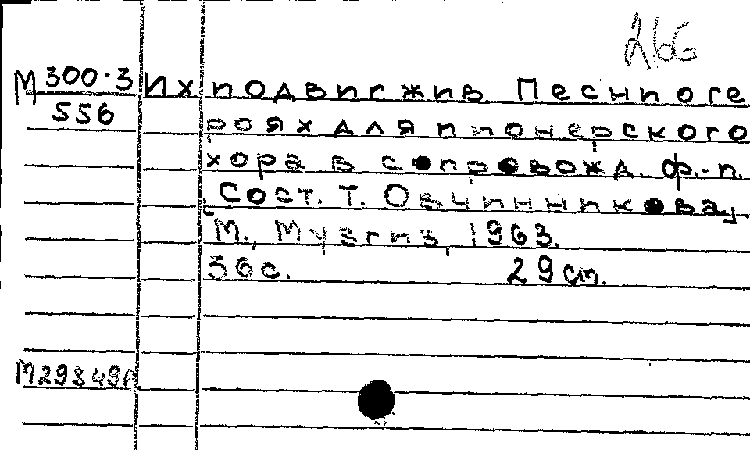 266
М 300-3 Их подвиг жив Песни о ге
556
роях для пионерского
хора в сопровожд. ф.-п.
[Сост. Т. Овчинникова]
М., Музгиз, 1963.
36 с. 29 см.